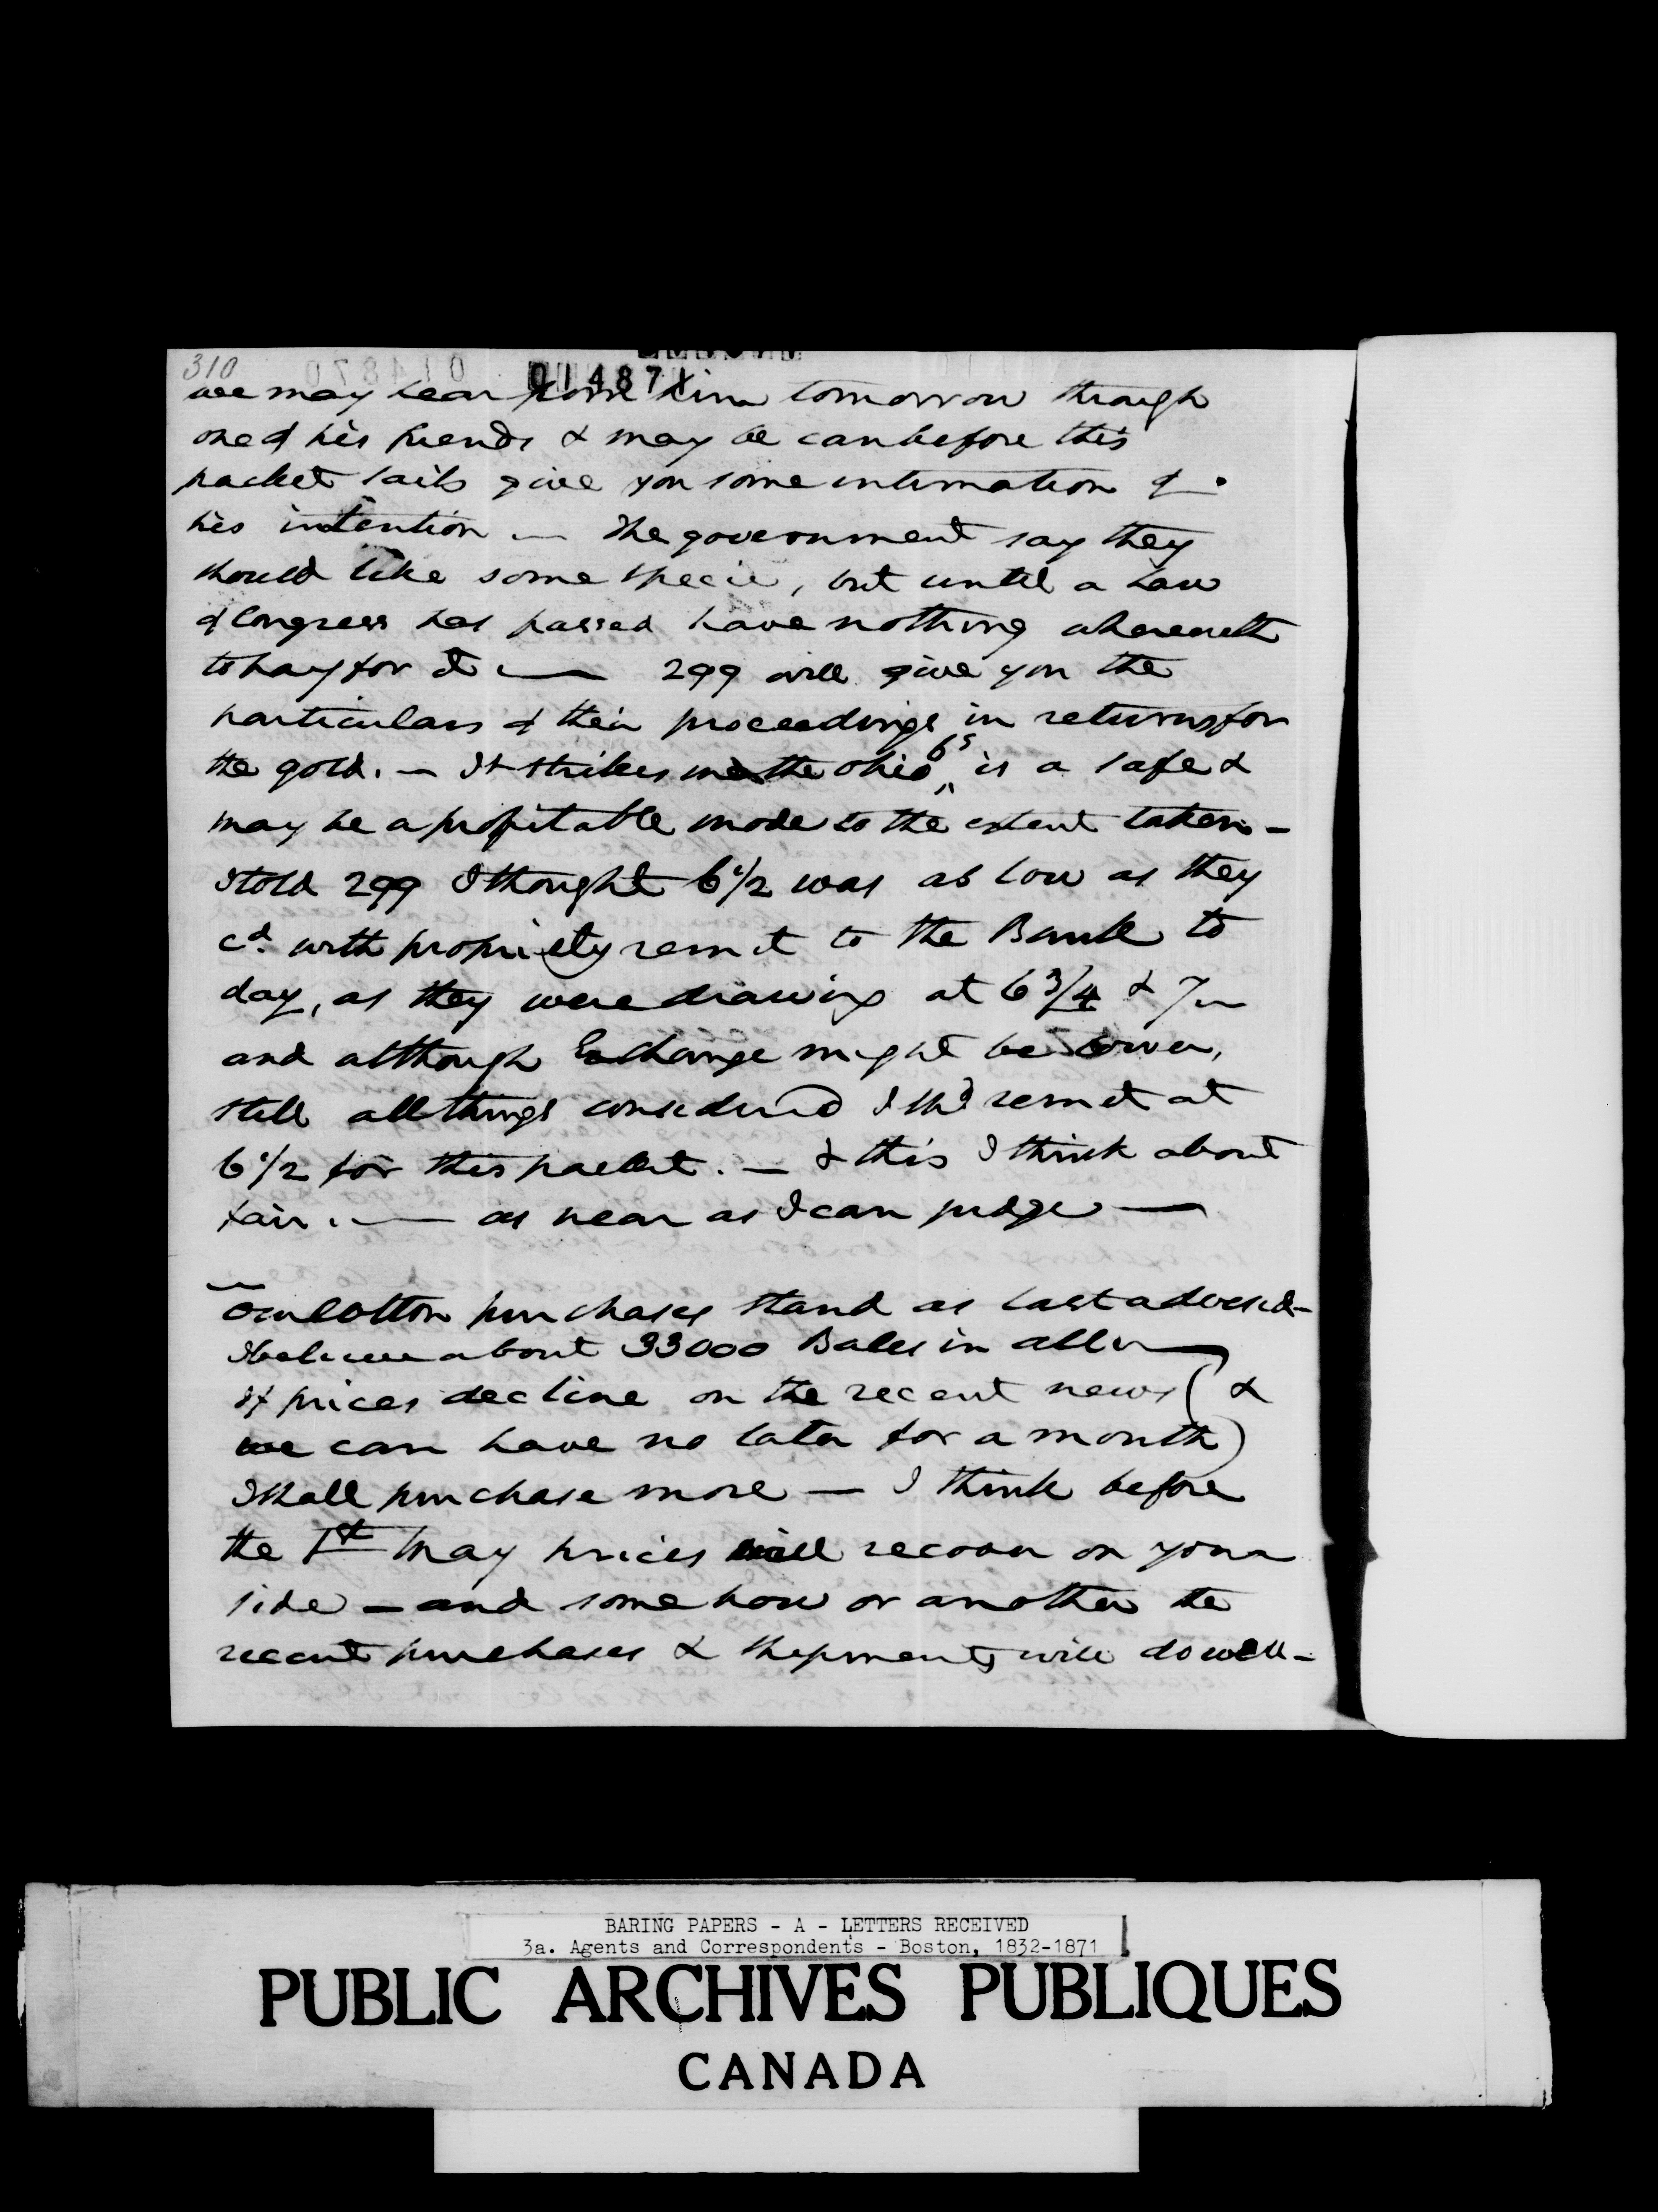 310
014871
we may hear from him tomorrow through
one of his friends & may be can before this
packet sails give you some intimation of
his intention — The government say they
should like some specie, but until a Law
of Congress has passed have nothing wherewith
to pay for it — 299 will give you the
particulars of their proceedings in returns for
the gold. — It strikes me the Ohio 6s is a safe &
may be a profitable mode to the extent taken —
I told 299 I thought 6 1/2 was as low as they
cd. with propriety remit to the Bank to
day, as they were drawing at 6 3/4 & 7 —
and although Exchange might be lower,
still all things considered I shd remit at
6 1/2 for this packet. — & this I think about
fair. — as near as I can judge —
Our Cotton purchases stand as last advised —
I believe about 33000 Bales in all —
If prices decline on the recent news (&
we can have no later for a month)
I shall purchase more — I think before
the 1st May prices will recover on your
side — and some how or another the
recent purchases & shipments will do well —
BARING PAPERS - A - LETTERS RECEIVED
3a. Agents and Correspondents - Boston, 1832-1871
PUBLIC ARCHIVES PUBLIQUES
CANADA